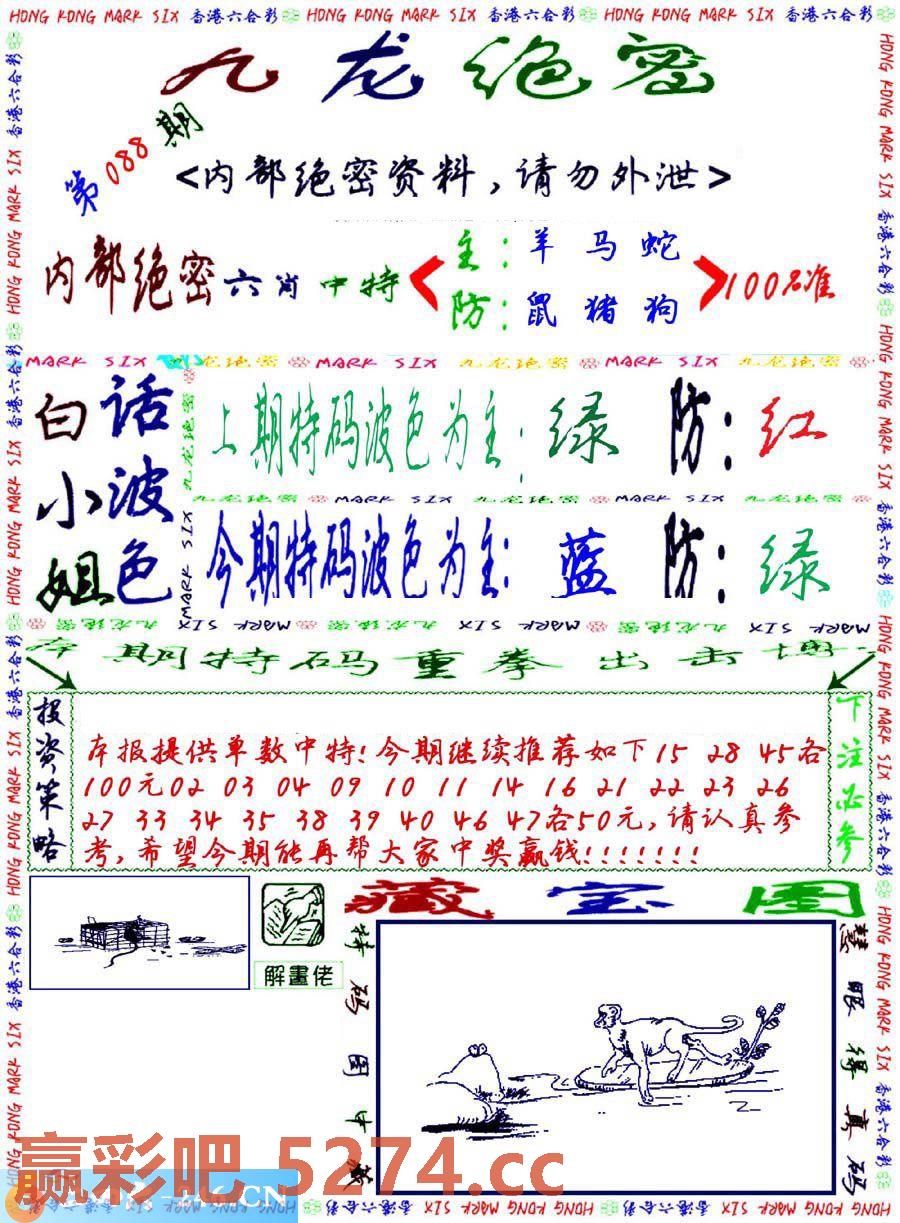 HONG KONG MARK SIX 香港六合彩 HONG KONG MARK SIX 香港六合彩 HONG KONG MARK SIX 香港六合彩
九龙绝密
第088期
<内部绝密资料,请勿外泄>
内部绝密六肖中特
主:羊马蛇
防:鼠猪狗
100%准
MARK SIX 九龙绝密 MARK SIX 九龙绝密 MARK SIX 九龙绝密
白小姐
话波色
上期特码波色为主:绿 防:红
九龙绝密 MARK SIX 九龙绝密 MARK SIX 九龙绝密
今期特码波色为主:蓝 防:绿
九龙绝密 MARK SIX 九龙绝密 MARK SIX 九龙绝密 MARK SIX
本期特码重拳出击
投资策略
本报提供单数中特!今期继续推荐如下15 28 45各
100元02 03 04 09 10 11 14 16 21 22 23 26
27 33 34 35 38 39 40 46 47各50元,请认真参
考,希望今期能再帮大家中奖赢钱!!!!!!!
下注必参
藏宝图
解畫佬
特码图中藏
慧眼得真码
赢彩吧 5274.cc
.CN